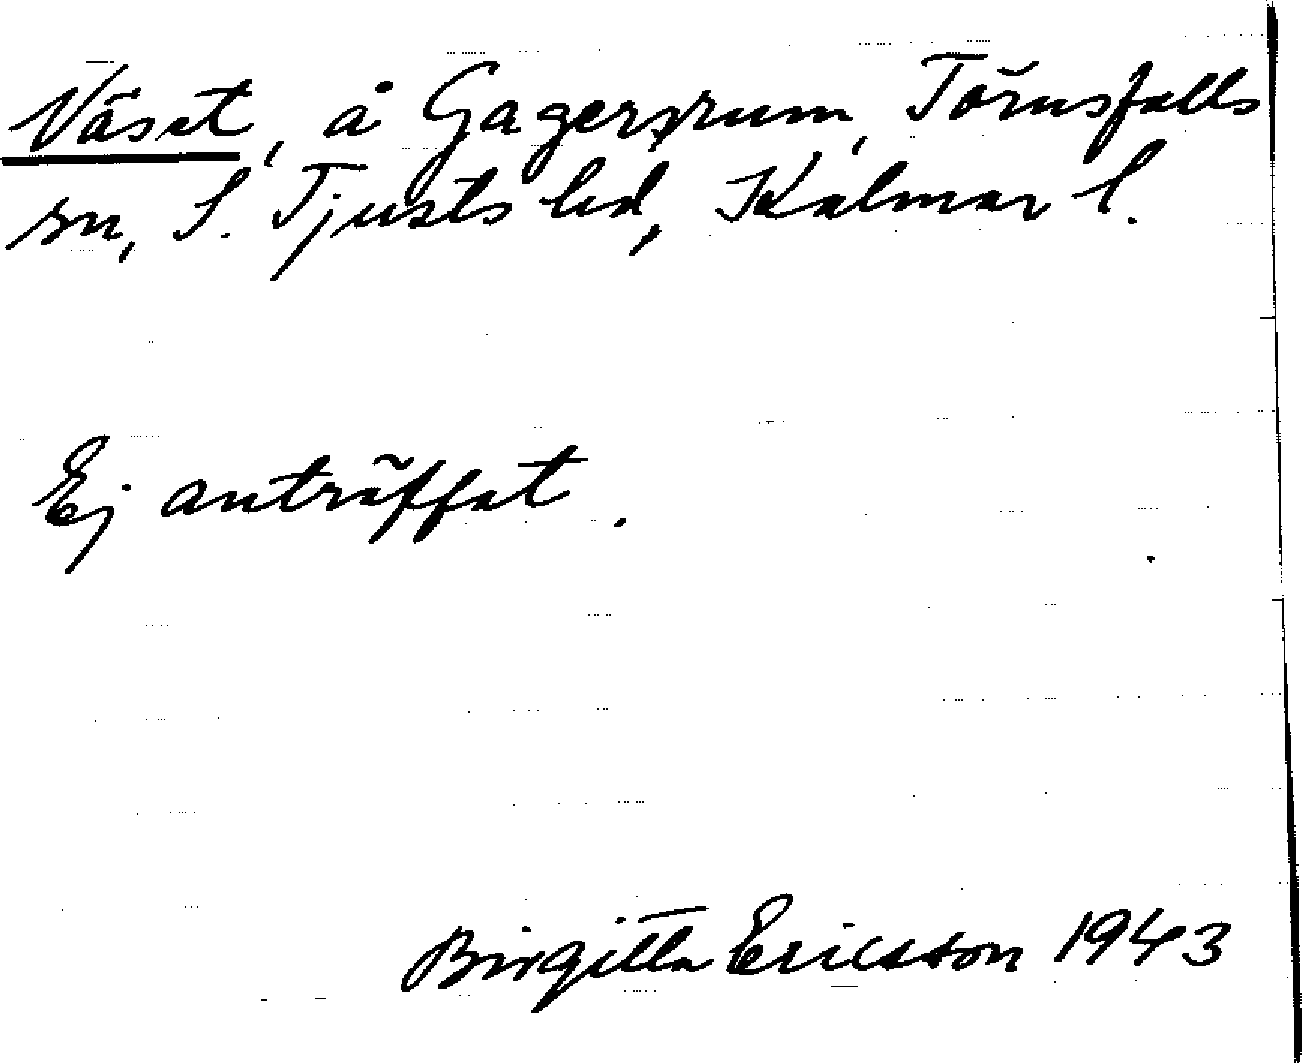 Väset, å Gagersrum, Törnsfalls
sn, S. Tjusts hd, Kalmar l.
Ej anträffat.
Birgitta Ericsson 1943